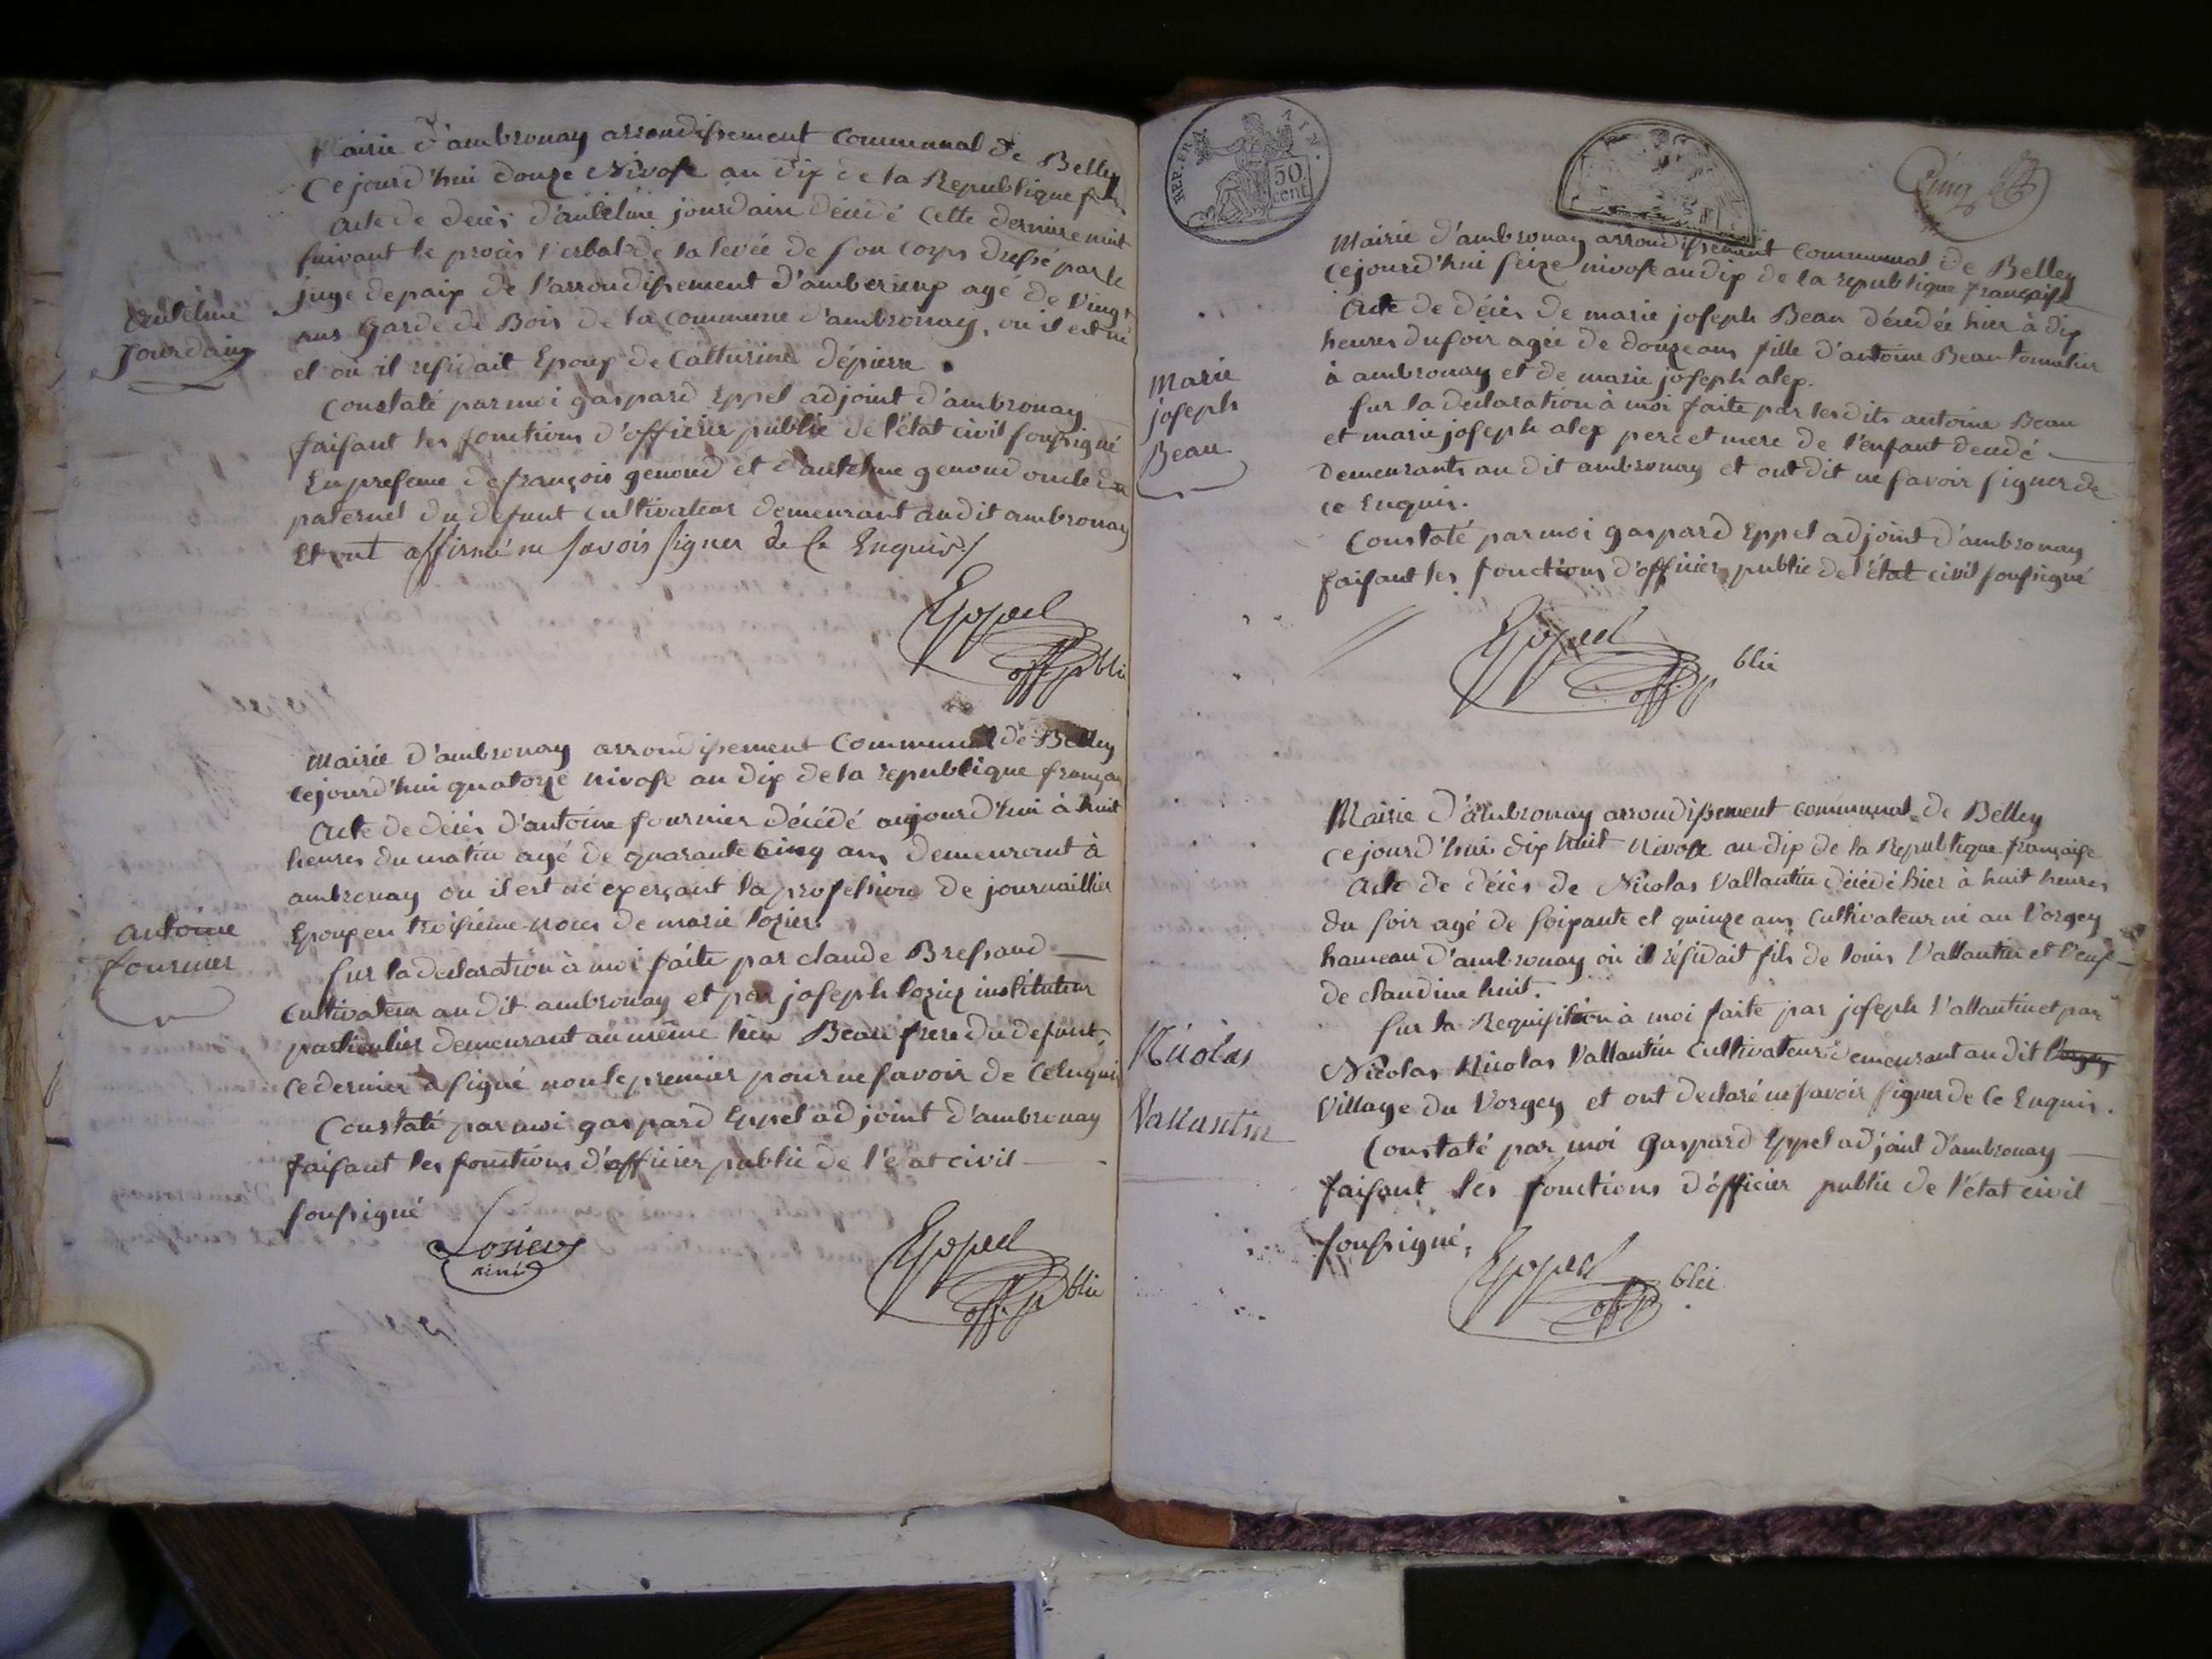 Mairie d'ambronay arrondissement Communal de Belley
Cejourd'hui douze Nivose an dix de la Republique
acte de decès d'antelme jourdain décédé cette derniere nuit
suivant le procès Verbal de la levée de son Corps dressé par le
juge de paix de l'arrondissement d'amberieux agé de Vingt
ans Garde de Bois de la Commune d'ambronay, ou il est né
et où il residait Epoux de Catherine dépierre
Antelme
Jourdain
Constaté par moi gaspard Eppel adjoint d'ambronay
faisant les fonctions d'officier public de l'état civil soussigné
En presence de françois genoud et d'antelme genoud oncle
paternel du defunt cultivateur demeurant audit ambronay
Et ont affirmé ne savoir signer de Ce Enquis ./
Eppel
off. p blic
Mairie d'ambronay arrondissement Communal de Belley
cejourd'hui quatorze nivose an dix de la republique
Acte de décès d'antoine fournier décédé aujourd'hui à huit
heures du matin agé de quarante cinq ans demeurant à
ambronay ou il est né exerçant la profession de journaillier
Epoux en troisième noces de marie lozier.
antoine
fournier
sur la declaration à moi faite par claude Bressand
cultivateur audit ambronay et par joseph lozier instituteur
particulier demeurant au même lieu Beau frere du defunt,
ce dernier a signé non le premier pour ne savoir de ce Enquis
Constaté par moi gaspard Eppel adjoint d'ambronay
faisant les fonctions d'officier public de l'etat civil
soussigné
Losier
Eppel
off. p blic
REP. FRA.
AIN.
50
cent
Cinq
Mairie d'ambronay arrondissement Communal de Belley
cejourd'hui seize nivose an dix de la republique française
Acte de décès de marie joseph Beau décédée hier à dix
heures du soir agée de douze ans fille d'antoine Beau tonnelier
à ambronay et de marie joseph alex.
marie
joseph
Beau
sur la declaration à moi faite par lesdits antoine Beau
et marie joseph alex pere et mere de l'enfant decedé
demeurants audit ambronay et ont dit ne savoir signer de
ce Enquis.
Constaté par moi gaspard Eppel adjoint d'ambronay
faisant les fonctions d'officier public de l'état civil soussigné
Eppel
off. p blic
Mairie d'ambronay arrondissement communal de Belley
cejourd'hui dix huit Nivose an dix de la Republique française
Acte de décès de Nicolas Vallantin décédé hier à huit heures
du soir agé de soixante et quinze ans cultivateur né au Vorgey
hameau d'ambronay où il résidait fils de louis Vallantin et Veuf
de claudine huit.
Nicolas
Vallantin
sur la Requisition à moi faite par joseph Vallantin et par
Nicolas Nicolas Vallantin Cultivateurs demeurant audit Vorgey
village du Vorgey et ont declaré ne savoir signer de Ce Enquis.
Constaté par moi Gaspard Eppel adjoint d'ambronay
faisant les fonctions d'officier public de l'état civil
soussigné,
Eppel
off. p blic